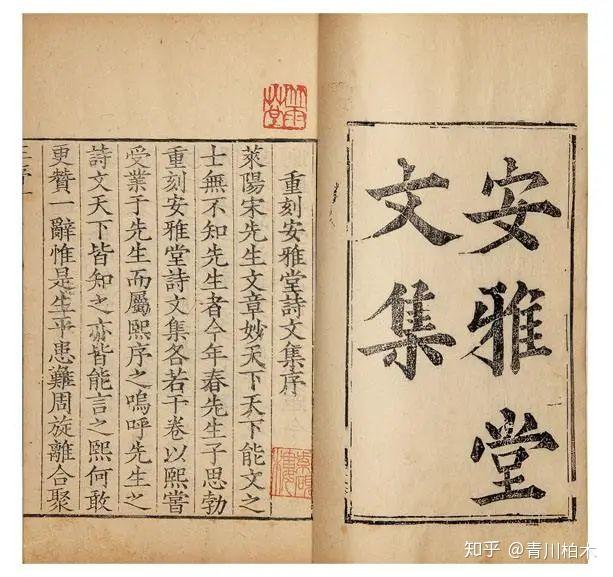 安雅堂
文集
重刻安雅堂詩文集序
萊陽宋先生文章妙天下天下能文之
士無不知先生者今年春先生子思勃
重刻安雅堂詩文集各若干卷以熙嘗
受業于先生而屬熙序之嗚呼先生之
詩文天下皆知之亦皆能言之熙何敢
更贊一辭惟是生平患難周旋離合聚
知乎 @青川柏木